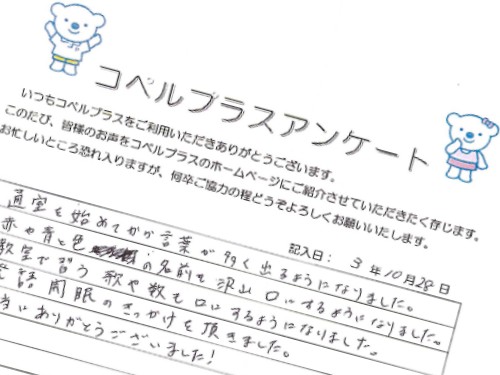 コペルプラスアンケート
いつもコペルプラスをご利用いただきありがとうございます。
このたび、皆様のお声をコペルプラスのホームページにご紹介させていただきたく存じます。
お忙しいところ恐れ入りますが、何卒ご協力の程どうぞよろしくお願いいたします。
記入日: 3 年 10 月 28 日
通室を始めてから言葉が多く出るようになりました。
赤や青と色の名前も沢山口にするようになりました。
教室で習う歌や数も口にするようになりました。
発語開眼のきっかけを頂きました。
ありがとうございました!